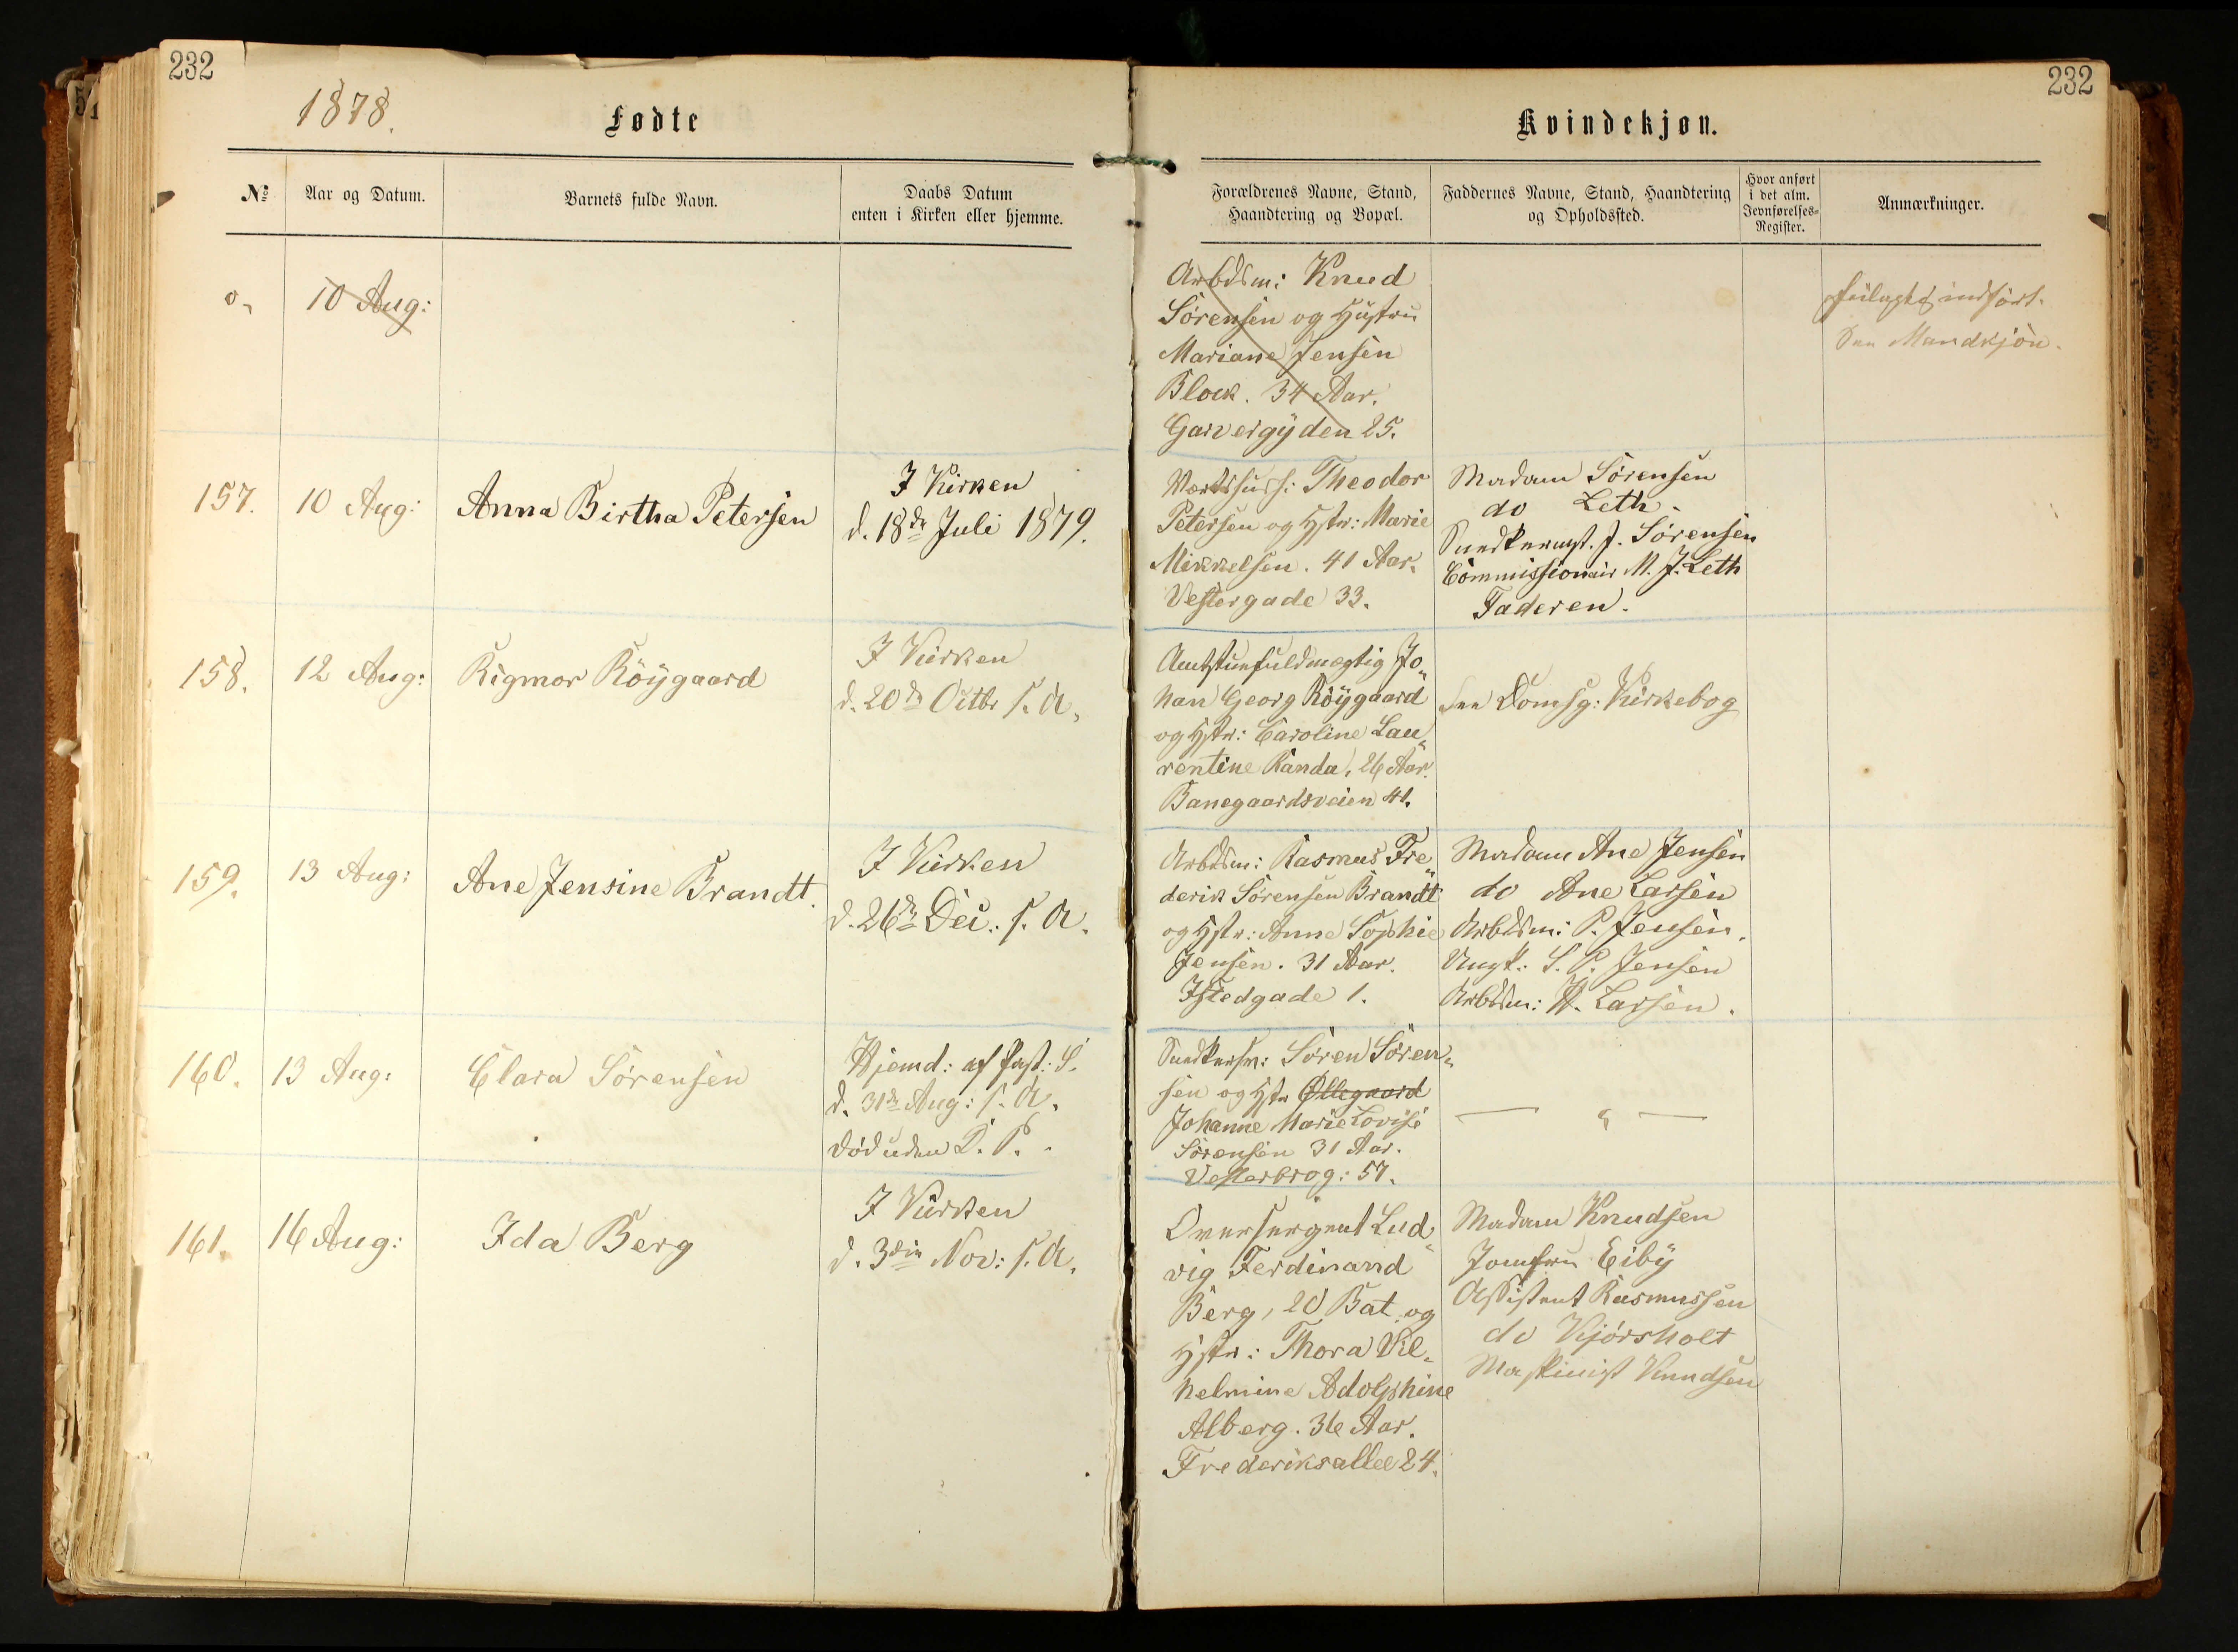 232
1878.
Fødte
№
Aar og Datum.
Barnets fulde Navn.
Daabs Datum
enten i Kirken eller hjemme.
10 Aug:
157.
10 Aug:
Anna Birtha Petersen
I Kirken
d. 18de Juli 1879.
158.
12 Aug:
Rigmor Röÿgaard
I Kirken
d. 20de Octbr s. A.
159.
13 Aug:
Ane Jensine Brandt.
I Kirken
d. 26de Dec: s. A.
160.
13 Aug:
Clara Sørensen
Hjemd: af Past: S.
d. 31de Aug: s. A.
død uden D. P.
161.
16 Aug:
Ida Berg
I Kirken
d. 3die Nov: s. A.
232
Kvindekjøn.
Forældrenes Navne, Stand,
Haandtering og Bopæl.
Faddernes Navne, Stand, Haandtering
og Opholdssted.
Hvor anført
i det alm.
Jevnførelses-
Register.
Anmærkninger.
Arbdsm: Knud
Sørensen og Hustru
Mariane Jensen
Block. 34 Aar.
Garvergÿden 25.
feilagtig indført.
See Mandkjön.
Værtshush: Theodor
Petersen og Hstr: Marie
Mikkelsen. 41 Aar.
Vestergade 33.
Madam Sørensen
do Leth.
J. Sørensen
Commissionair M. J. Leth
Faderen.
Amtstuefuldmægtig Jo„
han Georg Röÿgaard
og Hstr: Caroline Lau„
rentine Randa, 26 Aar.
Banegaardsveien 41.
See Domsg: Kirkebog
Arbdsm: Rasmus Fre„
derik Sørensen Brandt
og Hstr: Anne Sophie
Jensen. 31 Aar.
Istedgade 1.
Madam Ane Jensen
do Ane Larsen
Arbdsm: P. Jensen.
Ungk: S. P. Jensen
Arbdsm: H. Larsen.
Snedkersv: Søren Søren„
sen og Hstr Øllegaard
Johanne Marie Lovise
Sørensen 31 Aar.
Vesterbrog: 57.
— „ —
Oversergeant Lud„
vig Ferdinand
Berg, 20 Bat. og
Hstr: Thora Vil„
helmine Adolphine
Alberg. 36 Aar.
Frederiksallee 24.
Madam Knudsen
Jomfru Eibÿ
Assistent Rasmussen
do Kjørsholt
Maskinist Knudsen